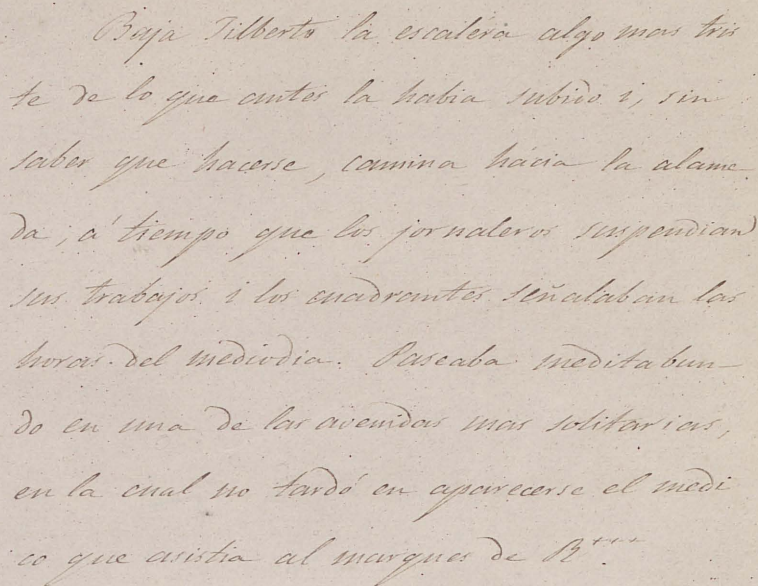 Baja Gilberto la escalera algo mas tris
te de lo que antes la habia subido i, sin
saber que hacerse, camina hácia la alame
da, á tiempo que los jornaleros suspendian
sus trabajos i los cuadrantes señalaban las
horas del mediodia. Paseaba meditabun-
do en una de las avenidas mas solitarias,
en la cual no tardó en aparecerse el medi
co que asistia al marques de R****.